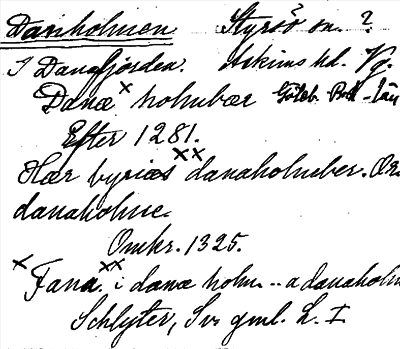 Danholmen Styrsö sn. ?
I Danafjorden. Askims hd. Vg.
Danæ x holmbær Göteb.
Efter 1281.
Hær byrias xx danaholmber.
danaholme.
Omkr. 1325.
x Fana. xx i danæ holm .. a danaholm
Schlyter, Sv. gml. L. I